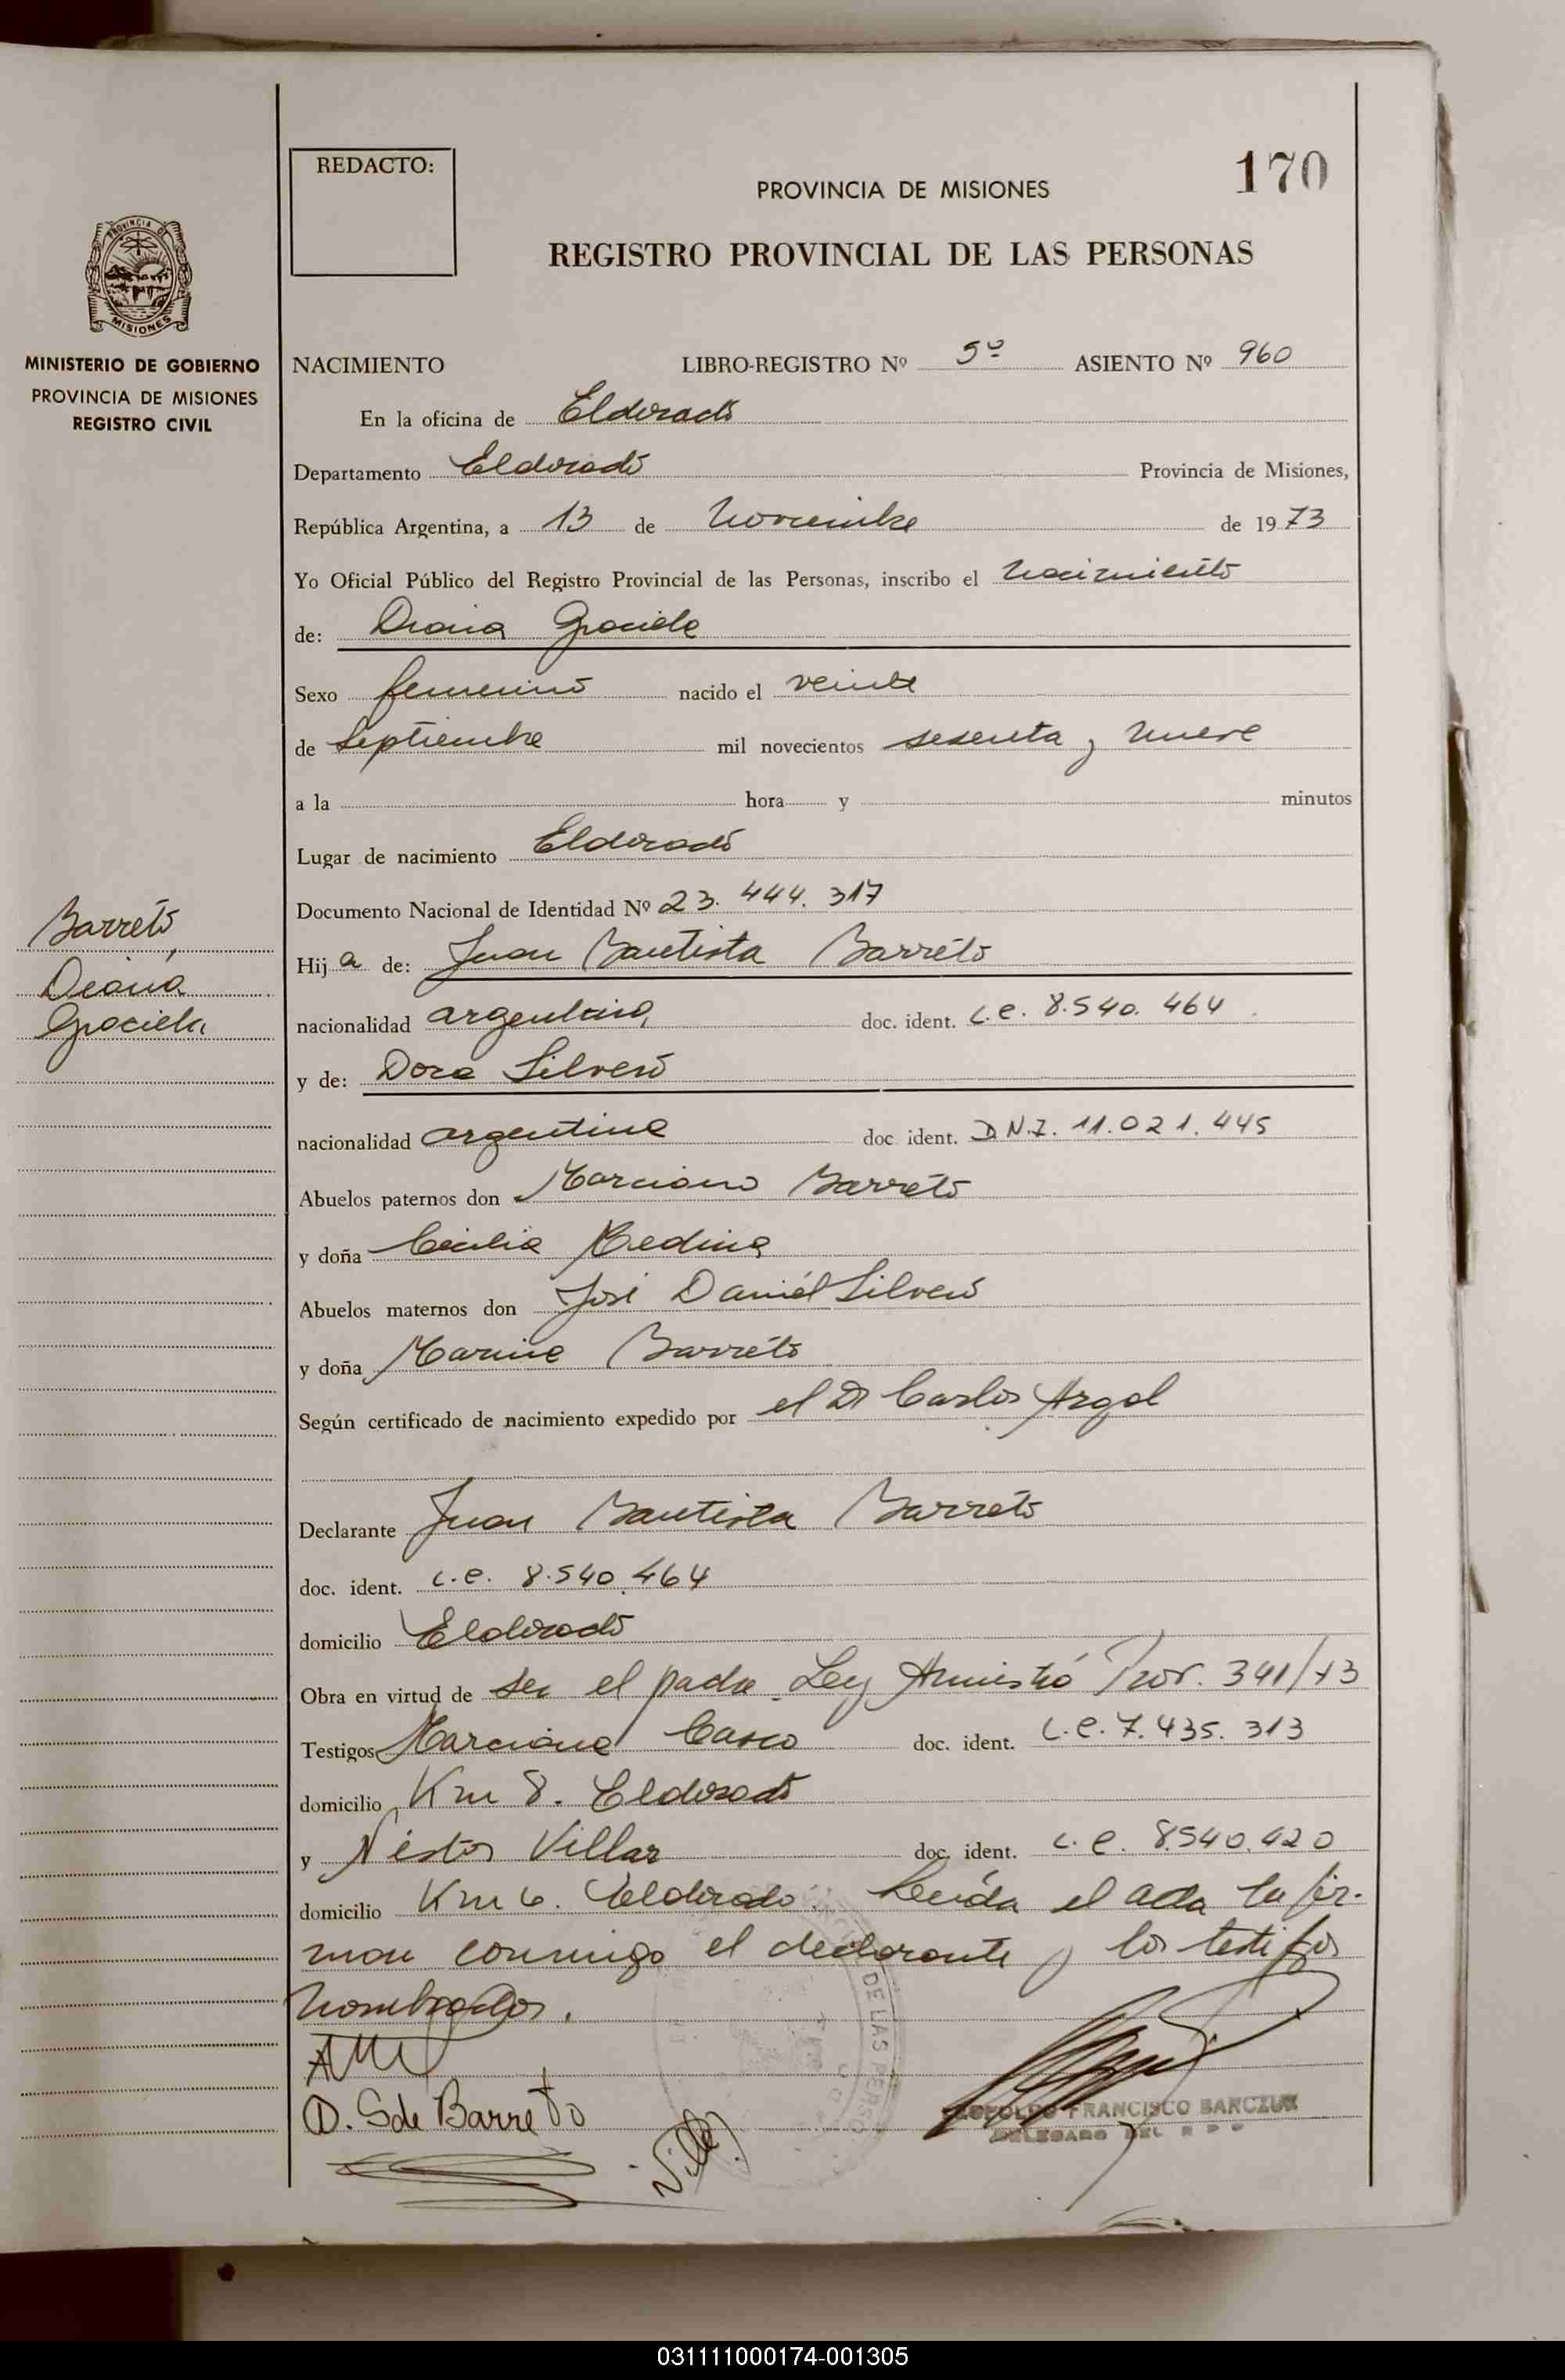 REDACTO:
170
PROVINCIA DE MISIONES
REGISTRO PROVINCIAL DE LAS PERSONAS
PROVINCIA DE
MISIONES
MINISTERIO DE GOBIERNO
PROVINCIA DE MISIONES
REGISTRO CIVIL
NACIMIENTO LIBRO-REGISTRO Nº 5º ASIENTO Nº 960
En la oficina de Eldorado
Departamento Eldorado Provincia de Misiones,
República Argentina, a 13 de Noviembre de 1973
Yo Oficial Público del Registro Provincial de las Personas, inscribo el nacimiento
de: Diana Graciela
Sexo femenino nacido el veinte
de Septiembre mil novecientos sesenta y nueve
a la hora y minutos
Lugar de nacimiento Eldorado
Documento Nacional de Identidad Nº 23.444.317
Barreto,
Diana
Graciela
Hija de: Juan Bautista Barreto
nacionalidad argentina doc. ident. L.E. 8.540.464
y de: Dora Silvero
nacionalidad argentina doc ident. D.N.I. 11.021.445
Abuelos paternos don Marciano Barreto
y doña Cecilia Medina
Abuelos maternos don José Daniel Silvero
y doña Marina Barreto
Según certificado de nacimiento expedido por el Dr Carlos Argol
Declarante Juan Bautista Barreto
doc. ident. L.E. 8.540.464
domicilio Eldorado
Obra en virtud de ser el padre. Ley Amnistía Prov. 341/73
Testigos Marciana Casco doc. ident. L.E. 7.435.313
domicilio Km 8. Eldorado
y Néstor Villar doc. ident. L.E. 8.540.420
domicilio Km 6. Eldorado. Leída el acta la fir-
man conmigo el declarante y los testigos
nombrados.
D. S de Barreto
DE LAS PERSO
FRANCISCO BANCZUK
DELEGADO DEL R P P
031111000174-001305